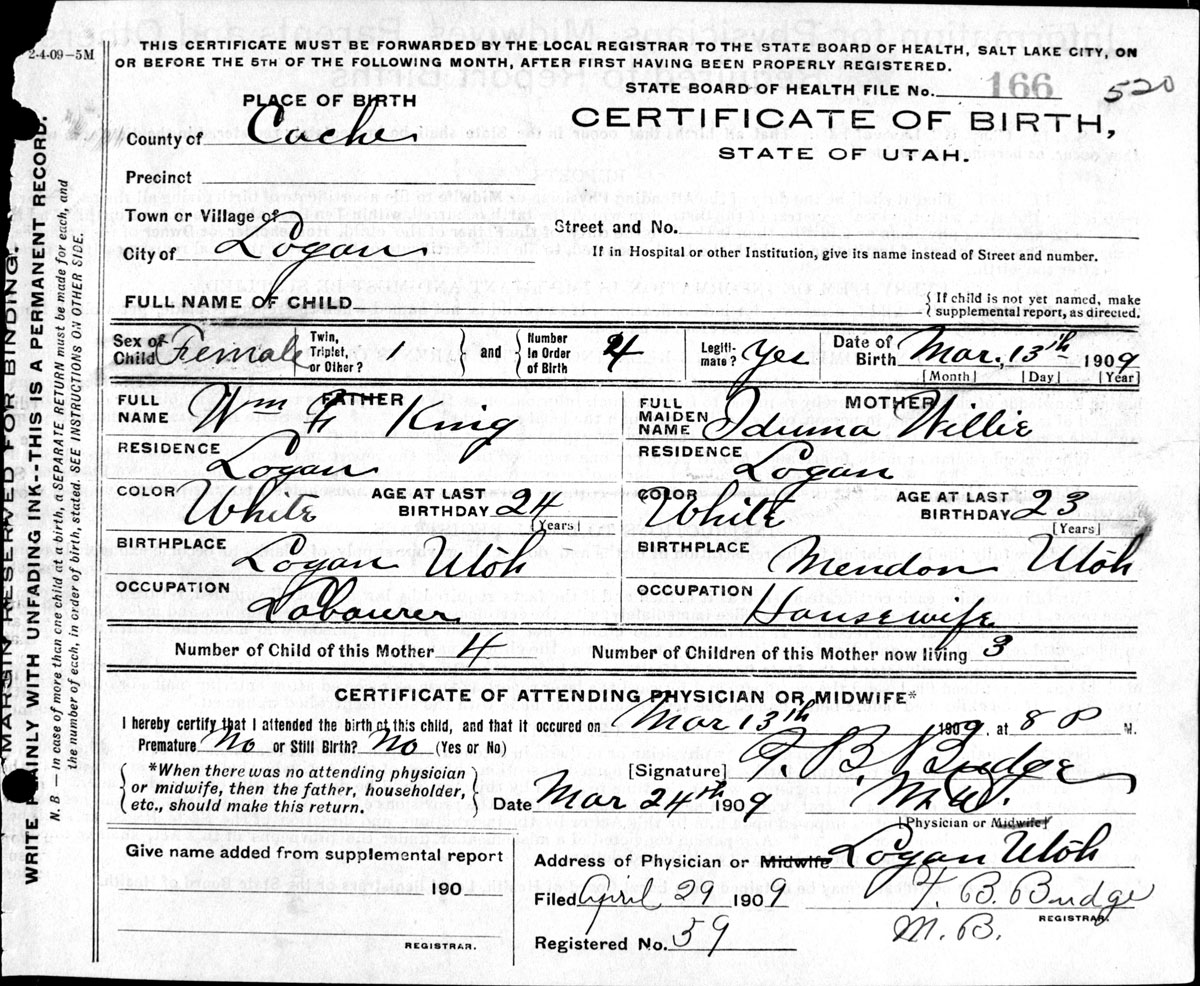 2-4-09-5M
THIS CERTIFICATE MUST BE FORWARDED BY THE LOCAL REGISTRAR TO THE STATE BOARD OF HEALTH, SALT LAKE CITY, ON
OR BEFORE THE 5TH OF THE FOLLOWING MONTH, AFTER FIRST HAVING BEEN PROPERLY REGISTERED.
STATE BOARD OF HEALTH FILE No. 166 520
PLACE OF BIRTH
CERTIFICATE OF BIRTH,
STATE OF UTAH.
County of Cache
Precinct
Town or Village of
Street and No.
City of Logan
If in Hospital or other Institution, give its name instead of Street and number.
FULL NAME OF CHILD
{ If child is not yet named, make
supplemental report, as directed.
Sex of Child Female Twin, Triplet, or Other? 1 } and { Number In Order of Birth 4 Legiti-mate? Yes Date of Birth Mar. 13th 1909
[Month] [Day] [Year]
FATHER
FULL NAME Wm F King
RESIDENCE
Logan
COLOR White AGE AT LAST BIRTHDAY 24
[Years]
BIRTHPLACE
Logan Utah
OCCUPATION
Labourer
MOTHER
FULL MAIDEN NAME Iduma Willie
RESIDENCE
Logan
COLOR White AGE AT LAST BIRTHDAY 23
[Years]
BIRTHPLACE
Mendon Utah
OCCUPATION
Housewife
Number of Child of this Mother 4 Number of Children of this Mother now living 3
CERTIFICATE OF ATTENDING PHYSICIAN OR MIDWIFE*
I hereby certify that I attended the birth of this child, and that it occured on Mar 13th 1909, at 8 P M.
Premature No or Still Birth? No (Yes or No)
{ *When there was no attending physician
or midwife, then the father, householder,
etc., should make this return. }
[Signature] T. B. Budge
Date Mar 24th 1909
[Physician or Midwife]
Give name added from supplemental report
190
REGISTRAR.
Address of Physician or Midwife Logan Utah
Filed April 29 1909 T. B. Budge
REGISTRAR.
Registered No. 59 M. B.
MARGIN RESERVED FOR BINDING.
WRITE PLAINLY WITH UNFADING INK--THIS IS A PERMANENT RECORD.
N. B.—In case of more than one child at a birth, a SEPARATE RETURN must be made for each, and
the number of each, in order of birth, stated. SEE INSTRUCTIONS ON OTHER SIDE.